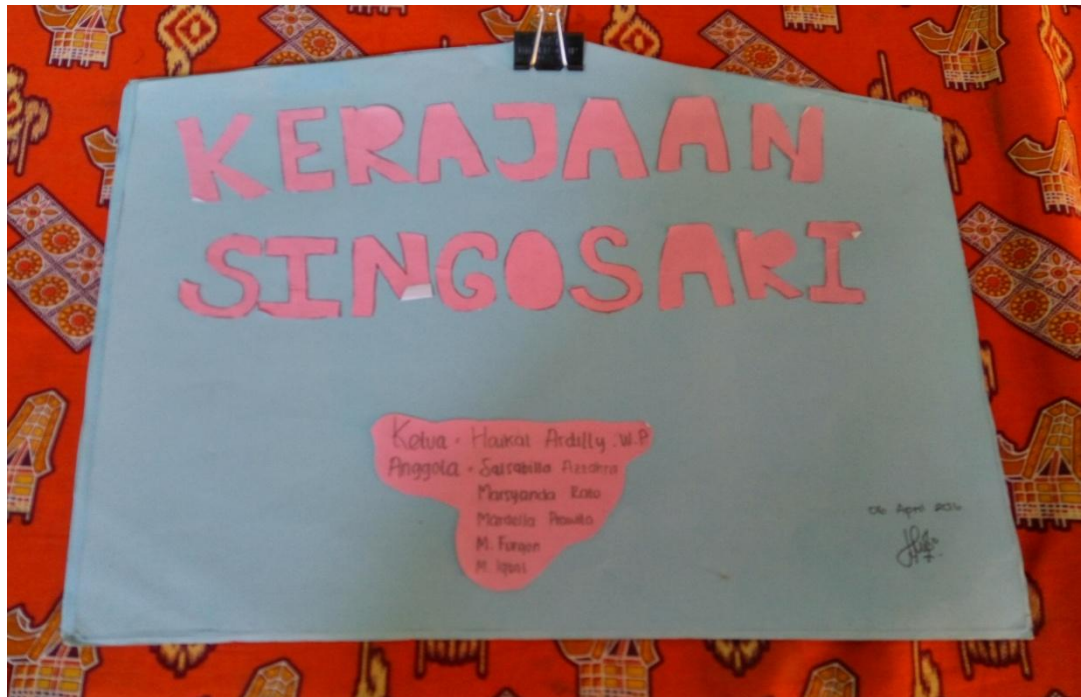 KERAJAAN
SINGOSARI
Ketua = Haikal Ardilly .W.P
Anggota = Salsabilla Azzahra
Marsyanda
Marsella
M. Furqon
M. Iqbal
06 April